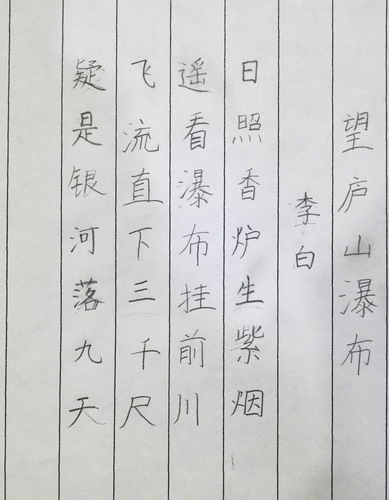 望庐山瀑布
李白
日照香炉生紫烟
遥看瀑布挂前川
飞流直下三千尺
疑是银河落九天